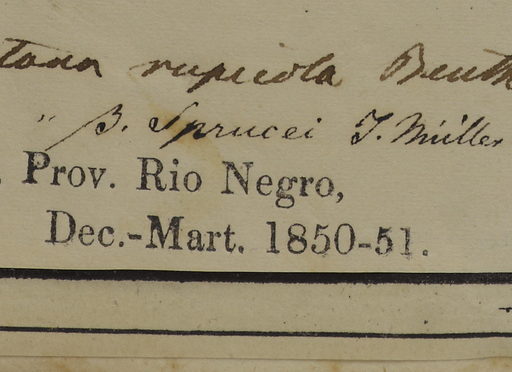 tana rupicola Benth
" β. Sprucei J. Müller
. Prov. Rio Negro,
Dec.-Mart. 1850-51.